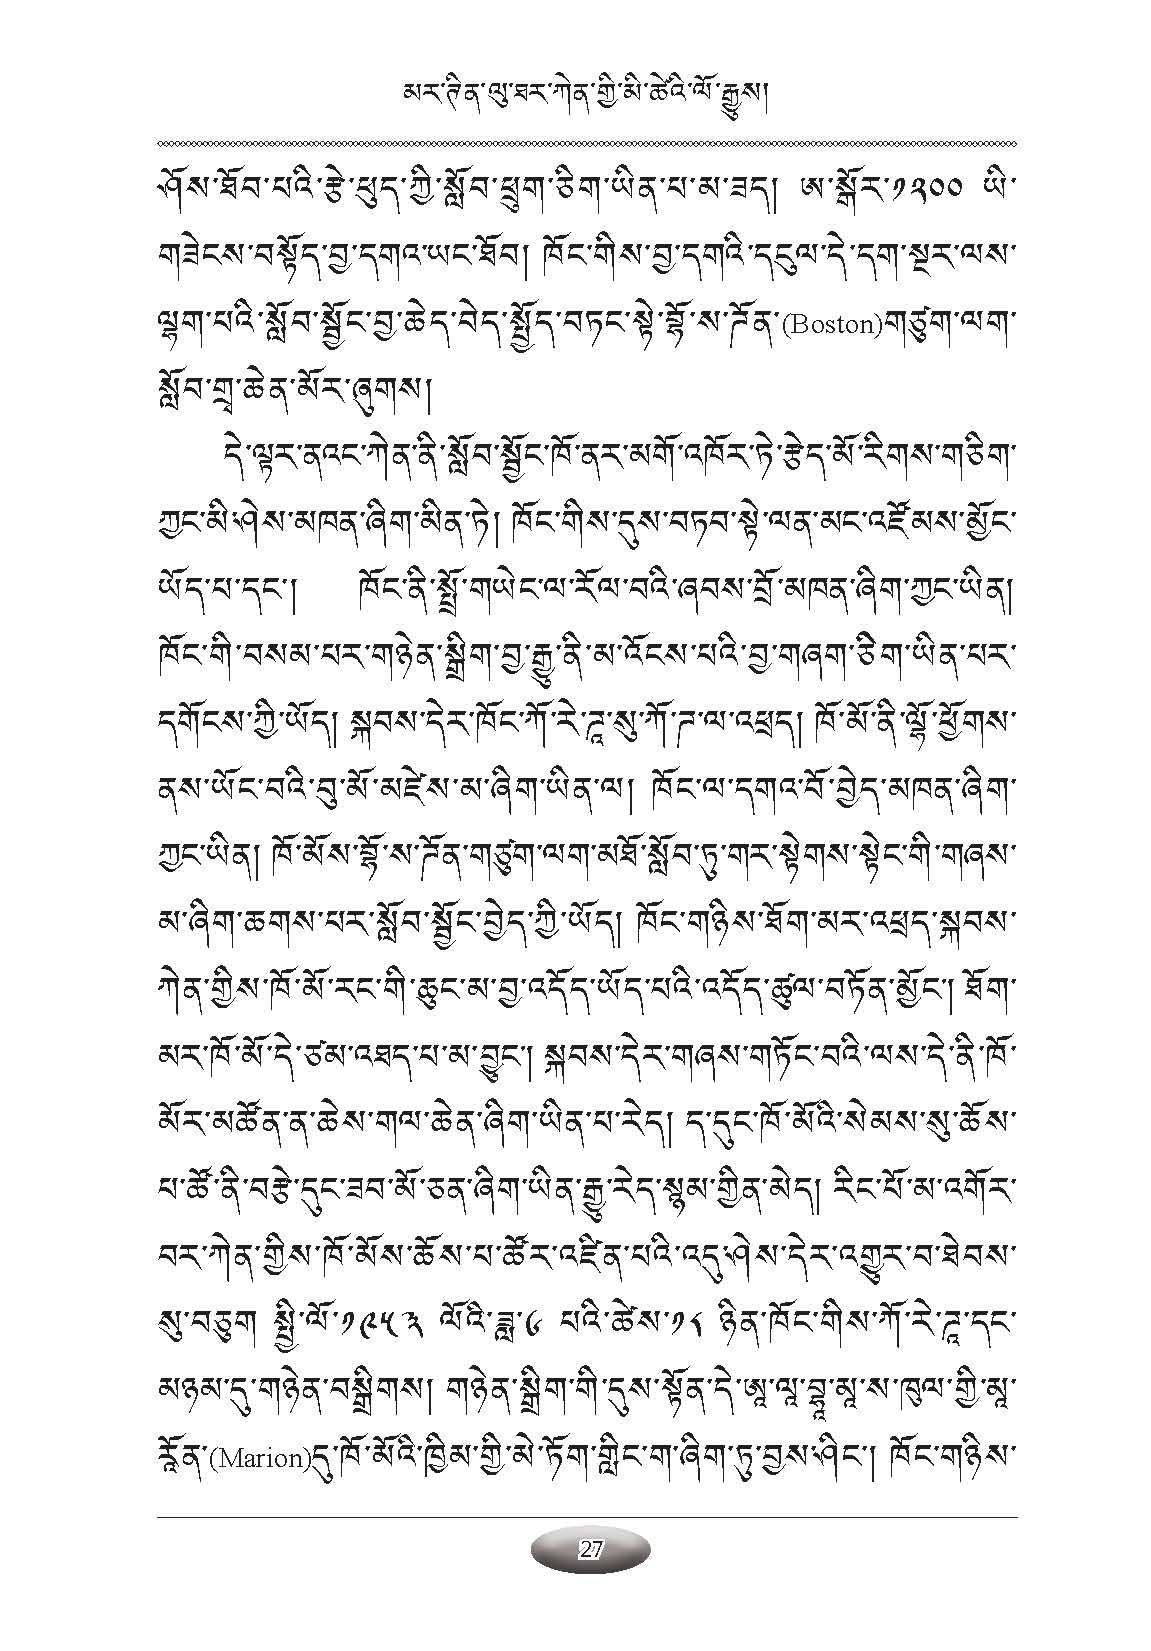 མར་ཊིན་ལུ་ཐར་ཀེན་གྱི་མི་ཚེའི་ལོ་རྒྱུས།
ཤོས་ཐོབ་པའི་རྩེ་ཕུད་ཀྱི་སློབ་ཕྲུག་ཅིག་ཡིན་པ་མ་ཟད། ཨ་སྒོར་༡༢༠༠ ཡི་
གཟེངས་བསྟོད་བྱ་དགའ་ཡང་ཐོབ། ཁོང་གིས་བྱ་དགའི་དངུལ་དེ་དག་སྔར་ལས་
ལྷག་པའི་སློབ་སྦྱོང་བྱ་ཆེད་བེད་སྤྱོད་བཏང་སྟེ་བྷོ་ས་ཊོན་(Boston)གཙུག་ལག་
སློབ་གྲྭ་ཆེན་མོར་ཞུགས།
དེ་ལྟར་ནའང་ཀེན་ནི་སློབ་སྦྱོང་ཁོ་ནར་མགོ་འཁོར་ཏེ་རྩེད་མོ་རིགས་གཅིག་
ཀྱང་མི་ཤེས་མཁན་ཞིག་མིན་ཏེ། ཁོང་གིས་དུས་བཏབ་སྟེ་ལན་མང་འཛོམས་མྱོང་
ཡོད་པ་དང་། ཁོང་ནི་སྤྲོ་གཡེང་ལ་རོལ་བའི་ཞབས་བྲོ་མཁན་ཞིག་ཀྱང་ཡིན།
ཁོང་གི་བསམ་པར་གཉེན་སྒྲིག་བྱ་རྒྱུ་ནི་མ་འོངས་པའི་བྱ་གཞག་ཅིག་ཡིན་པར་
དགོངས་ཀྱི་ཡོད། སྐབས་དེར་ཁོང་ཀོ་རེ་ཊཱ་སུ་ཀོ་ཊ་ལ་འཕྲད། ཁོ་མོ་ནི་ལྷོ་ཕྱོགས་
ནས་ཡོང་བའི་བུ་མོ་མཛེས་མ་ཞིག་ཡིན་ལ། ཁོང་ལ་དགའ་བོ་བྱེད་མཁན་ཞིག་
ཀྱང་ཡིན། ཁོ་མོས་བྷོ་ས་ཊོན་གཙུག་ལག་མཐོ་སློབ་ཏུ་གར་སྟེགས་སྟེང་གི་གཞས་
མ་ཞིག་ཆགས་པར་སློབ་སྦྱོང་བྱེད་ཀྱི་ཡོད། ཁོང་གཉིས་ཐོག་མར་འཕྲད་སྐབས་
ཀེན་གྱིས་ཁོ་མོ་རང་གི་ཆུང་མ་བྱ་འདོད་ཡོད་པའི་འདོད་ཚུལ་བཏོན་མྱོང་། ཐོག་
མར་ཁོ་མོ་དེ་ཙམ་འཐད་པ་མ་བྱུང་། སྐབས་དེར་གཞས་གཏོང་བའི་ལས་དེ་ནི་ཁོ་
མོར་མཚོན་ན་ཆེས་གལ་ཆེན་ཞིག་ཡིན་པ་རེད། ད་དུང་ཁོ་མོའི་སེམས་སུ་ཆོས་
པ་ཚོ་ནི་བརྩེ་དུང་ཟབ་མོ་ཅན་ཞིག་ཡིན་རྒྱུ་རེད་སྙམ་གྱིན་མེད། རིང་པོ་མ་འགོར་
བར་ཀེན་གྱིས་ཁོ་མོས་ཆོས་པ་ཚོར་འཛིན་པའི་འདུ་ཤེས་དེར་འགྱུར་བ་ཐེབས་
སུ་བཅུག སྤྱི་ལོ་༡༩༥༣ ལོའི་ཟླ་༦ པའི་ཚེས་༡༨ ཉིན་ཁོང་གིས་ཀོ་རེ་ཊཱ་དང་
མཉམ་དུ་གཉེན་བསྒྲིགས། གཉེན་སྒྲིག་གི་དུས་སྟོན་དེ་ཨཱ་ལཱ་བྷཱ་མཱ་ས་ཁུལ་གྱི་མཱ་
རཱོན་(Marion)དུ་ཁོ་མོའི་ཁྱིམ་གྱི་མེ་ཏོག་གླིང་ག་ཞིག་ཏུ་བྱས་ཤིང་། ཁོང་གཉིས་
27